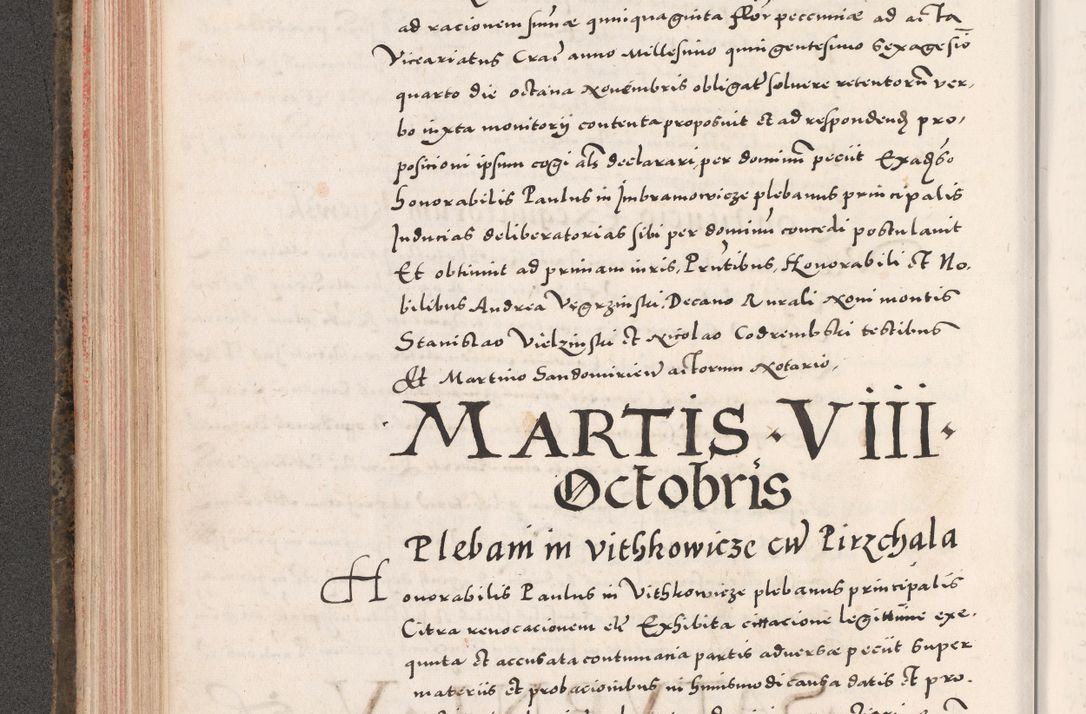 ad racionem sumæ quinquaginta flor peccuniæ ad acta
Viceariatus Craĉ anno Millesimo quingentesimo Sexagesiō
quarto die octaua Nouembris obligat soluere retentorū ver,
bo iuxta monitorij contenta proposuit et ad respondendꝫ pro,
posicioni ipsum cogi als declarari, per dominū peciit
honorabilis Paulus in Imbramowicze plebanus principalis
Inducias deliberatorias sibi per dominū concedi postulauit
Et obtinuit ad primam iuris, Pnntibus, Honorabili et No,
bilibus Andrea Vegrzinski, Decano Rurali Noni montis
Stanislao Vielzinski et Nicolao Codrembski testibus
Et Martino Sandomiriew actorum Notario,
MARTIS · VIII ·
Octobris
Plebani in Vithkowicze cū Pirzchala
Honorabilis Paulus in Vithkowicze plebanus principalis
Citra reuocacionem etc Exhibita cittacione legittime exe,
quuta et accusata contumacia partis aduersæ peciit super
materiis et probacionibus in huiusmodi causa datis et pro,